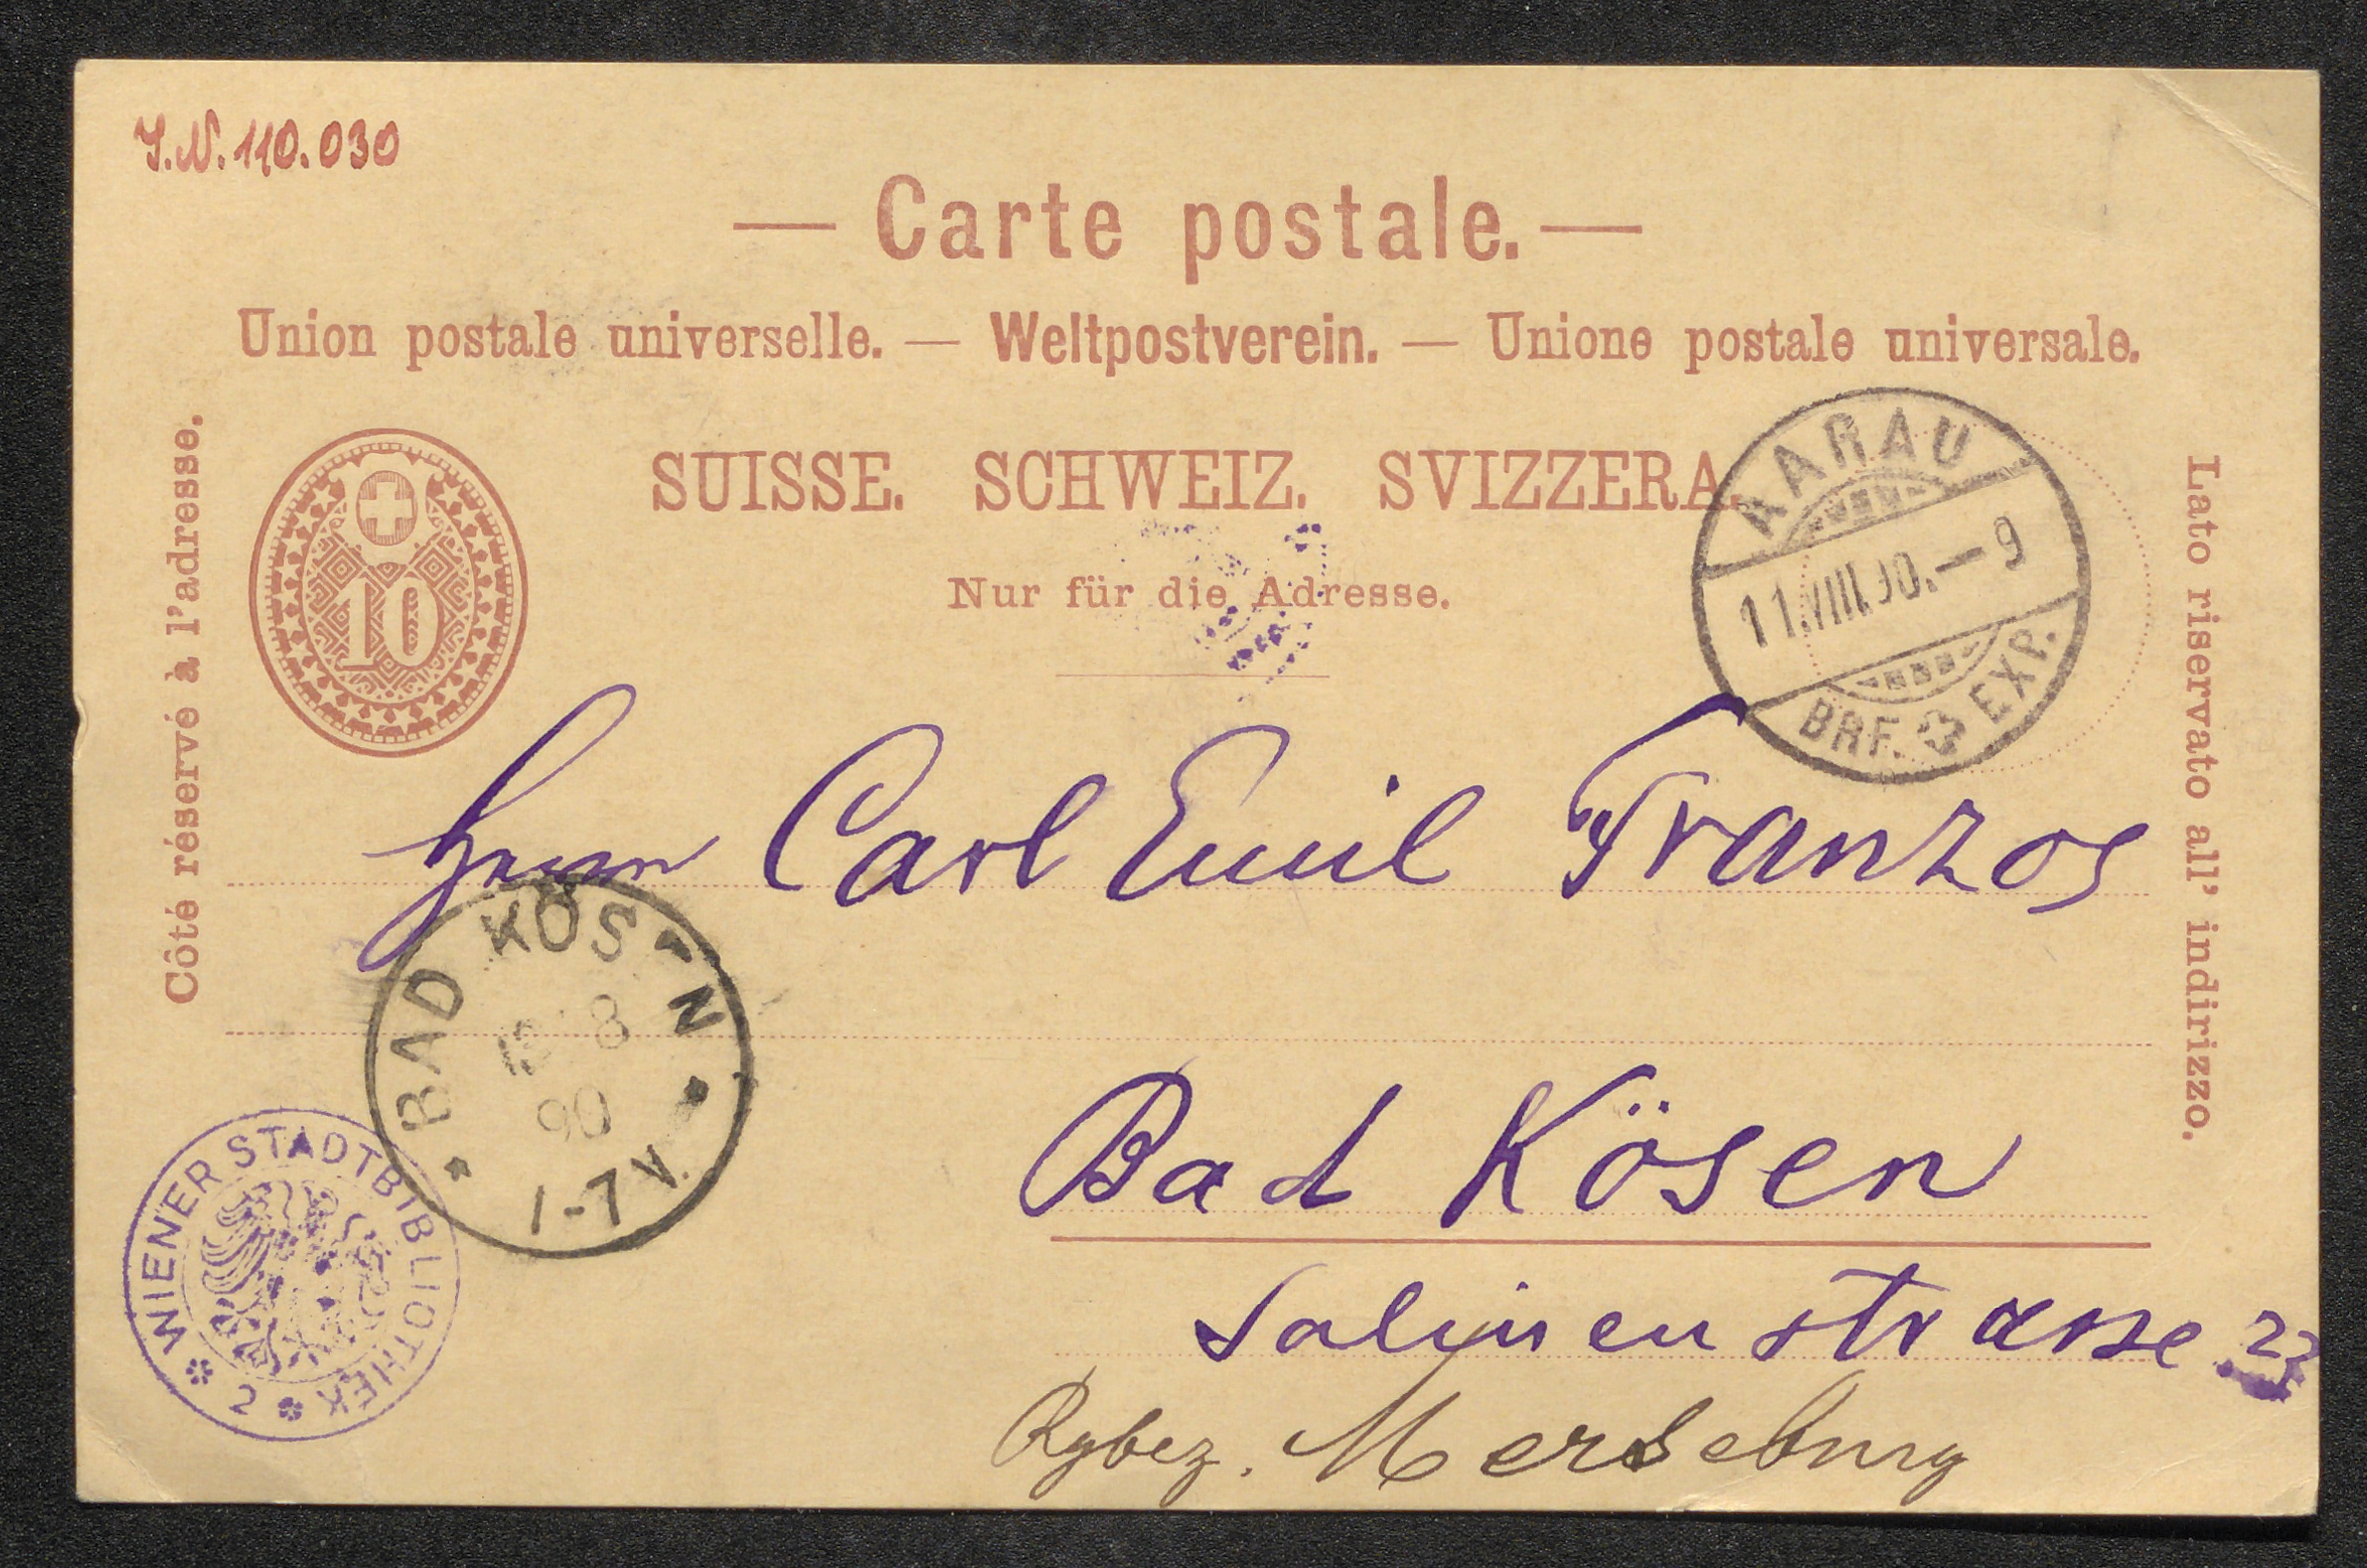 J.N. 110.030
— Carte postale. —
Union postale universelle. — Weltpostverein. — Unione postale universale.
SUISSE. SCHWEIZ. SVIZZERA.
Nur für die Adresse.
Côté réservé à l'adresse.
Lato riservato all' indirizzo.
10
AARAU
11.VIII.90.-9
BRF. EXP.
Herrn Carl Emil Franzos
BAD KÖSEN
8
90
1-7 V.
Bad Kösen
Salinenstrasse
Rgbez. Merseburg
WIENER STADTBIBLIOTHEK
2